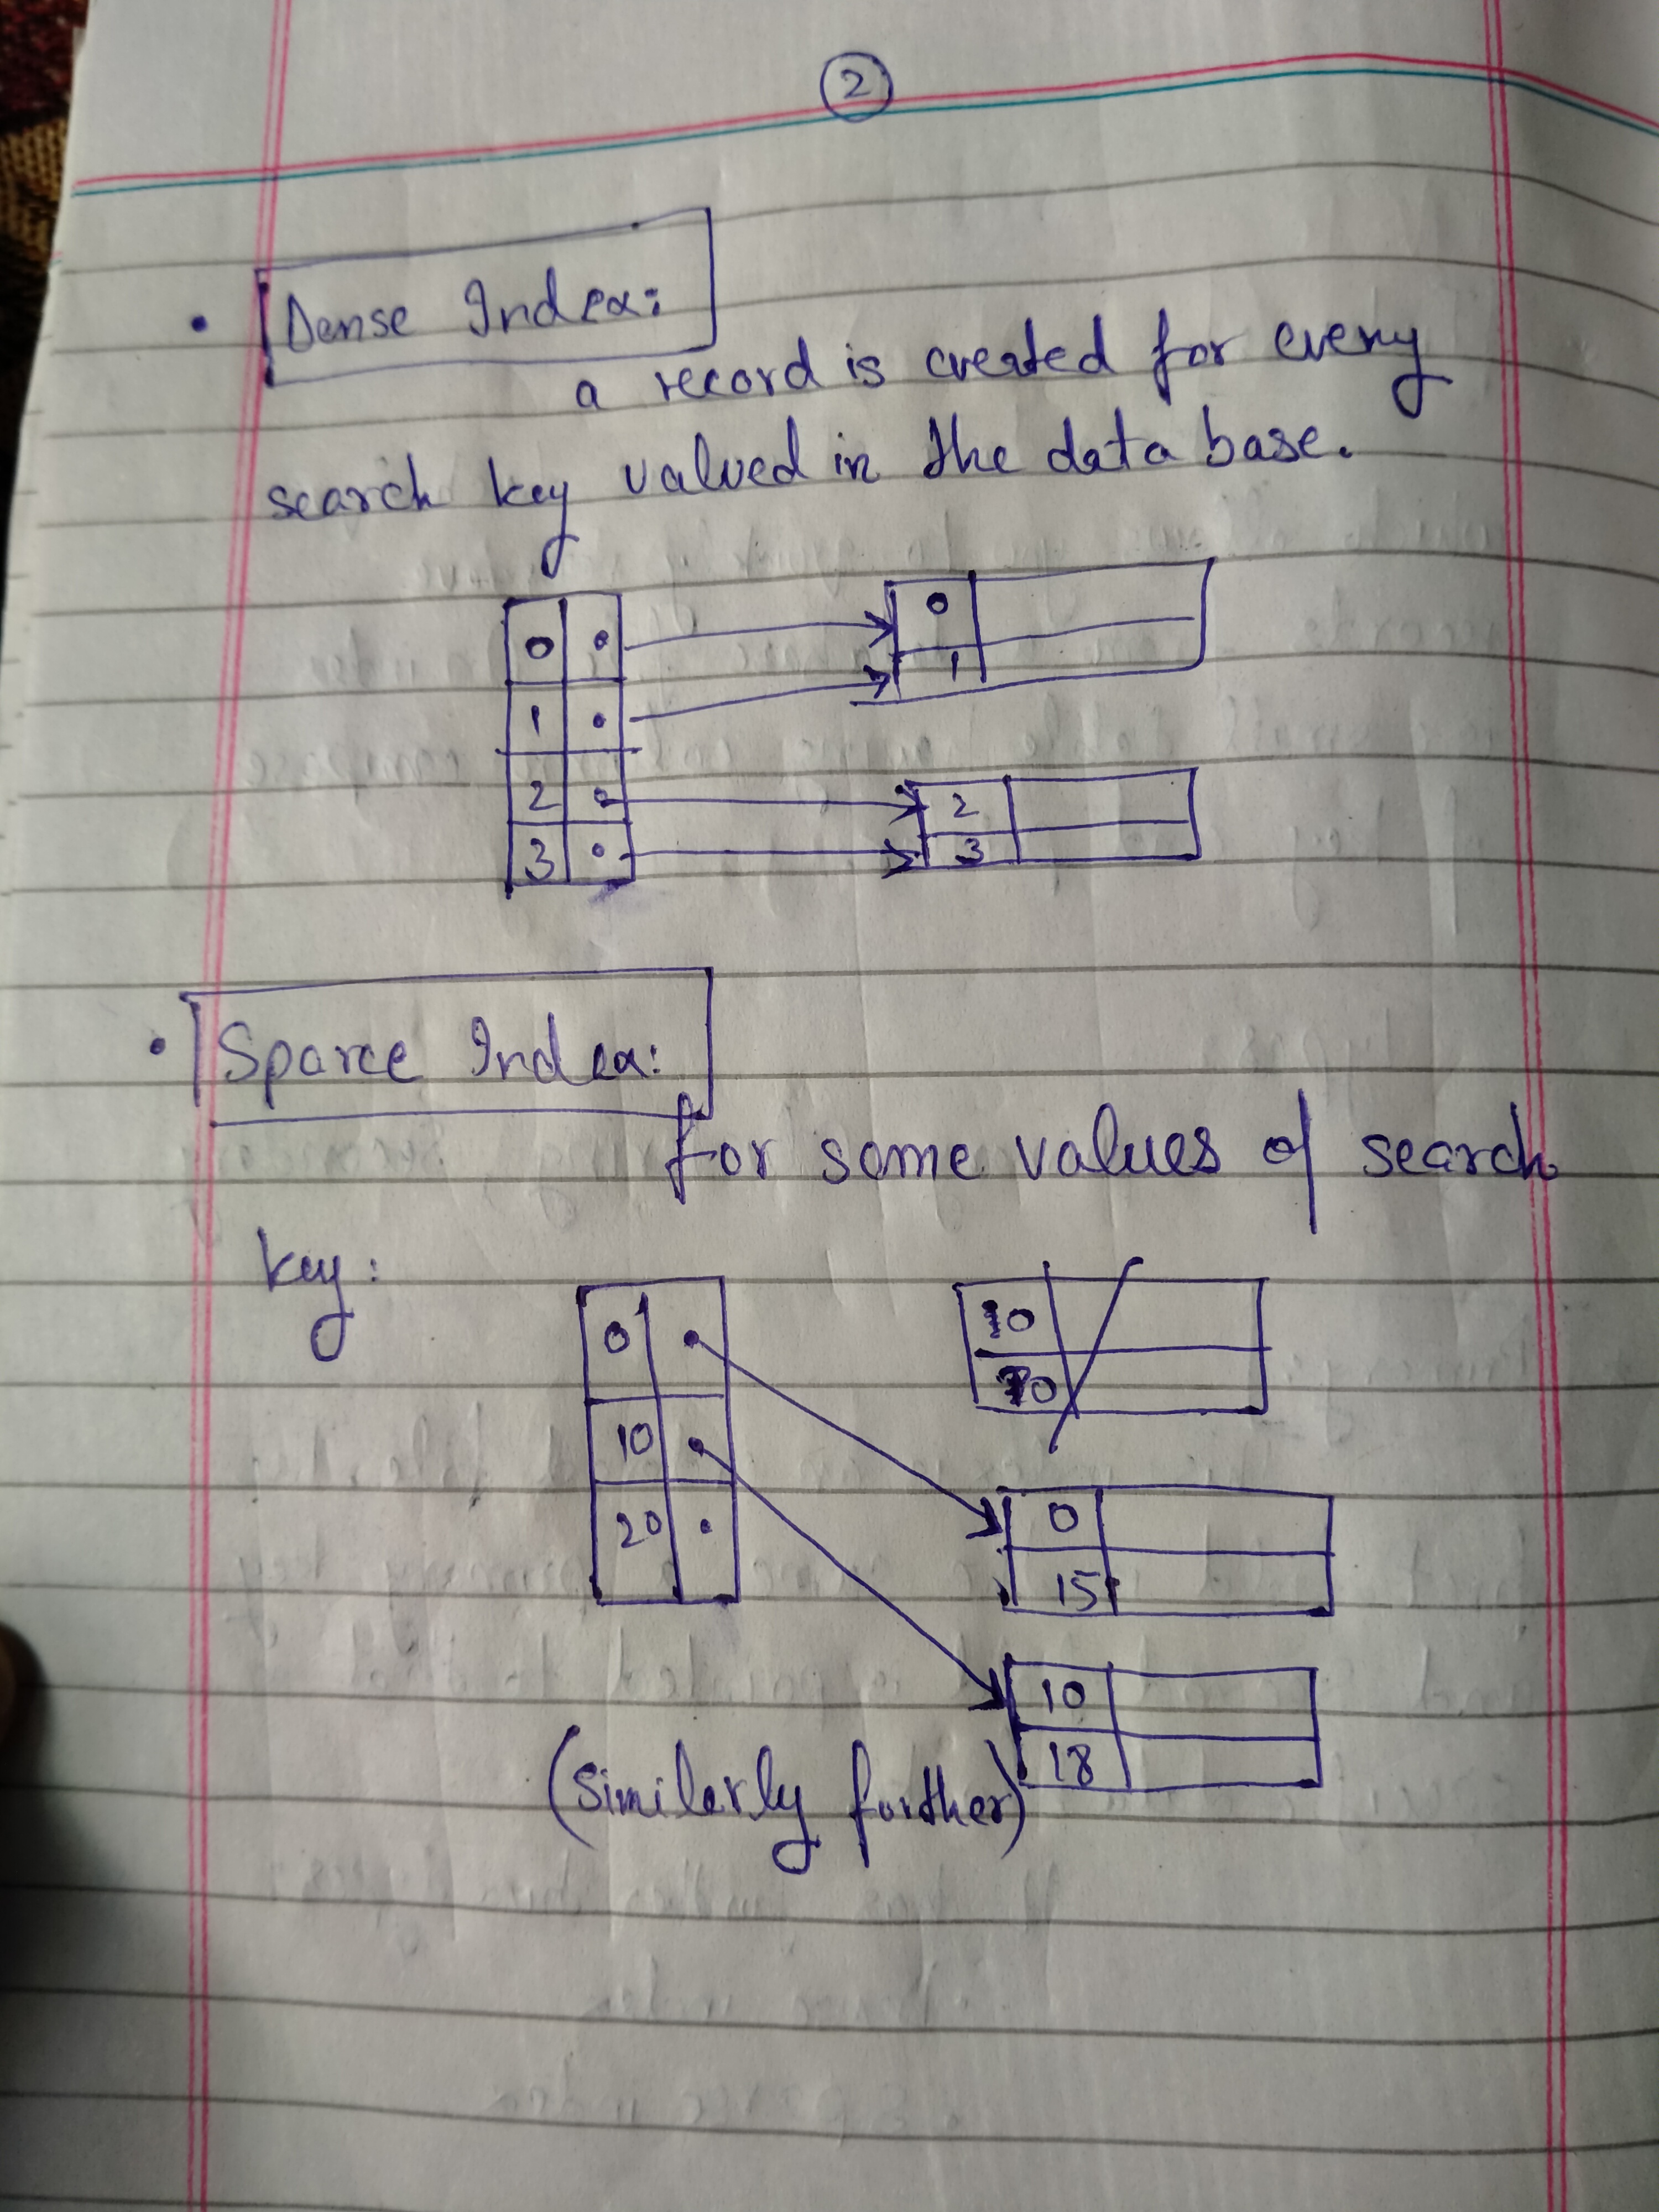 2
• Dense Index:
a record is created for every
search key valued in the data base.
0 •
1 •
2 •
3 •
0
1
2
3
• Sparce Index:
for some values of search
key:
0 •
10 •
20 •
10
0
15
10
18
(Similarly further)